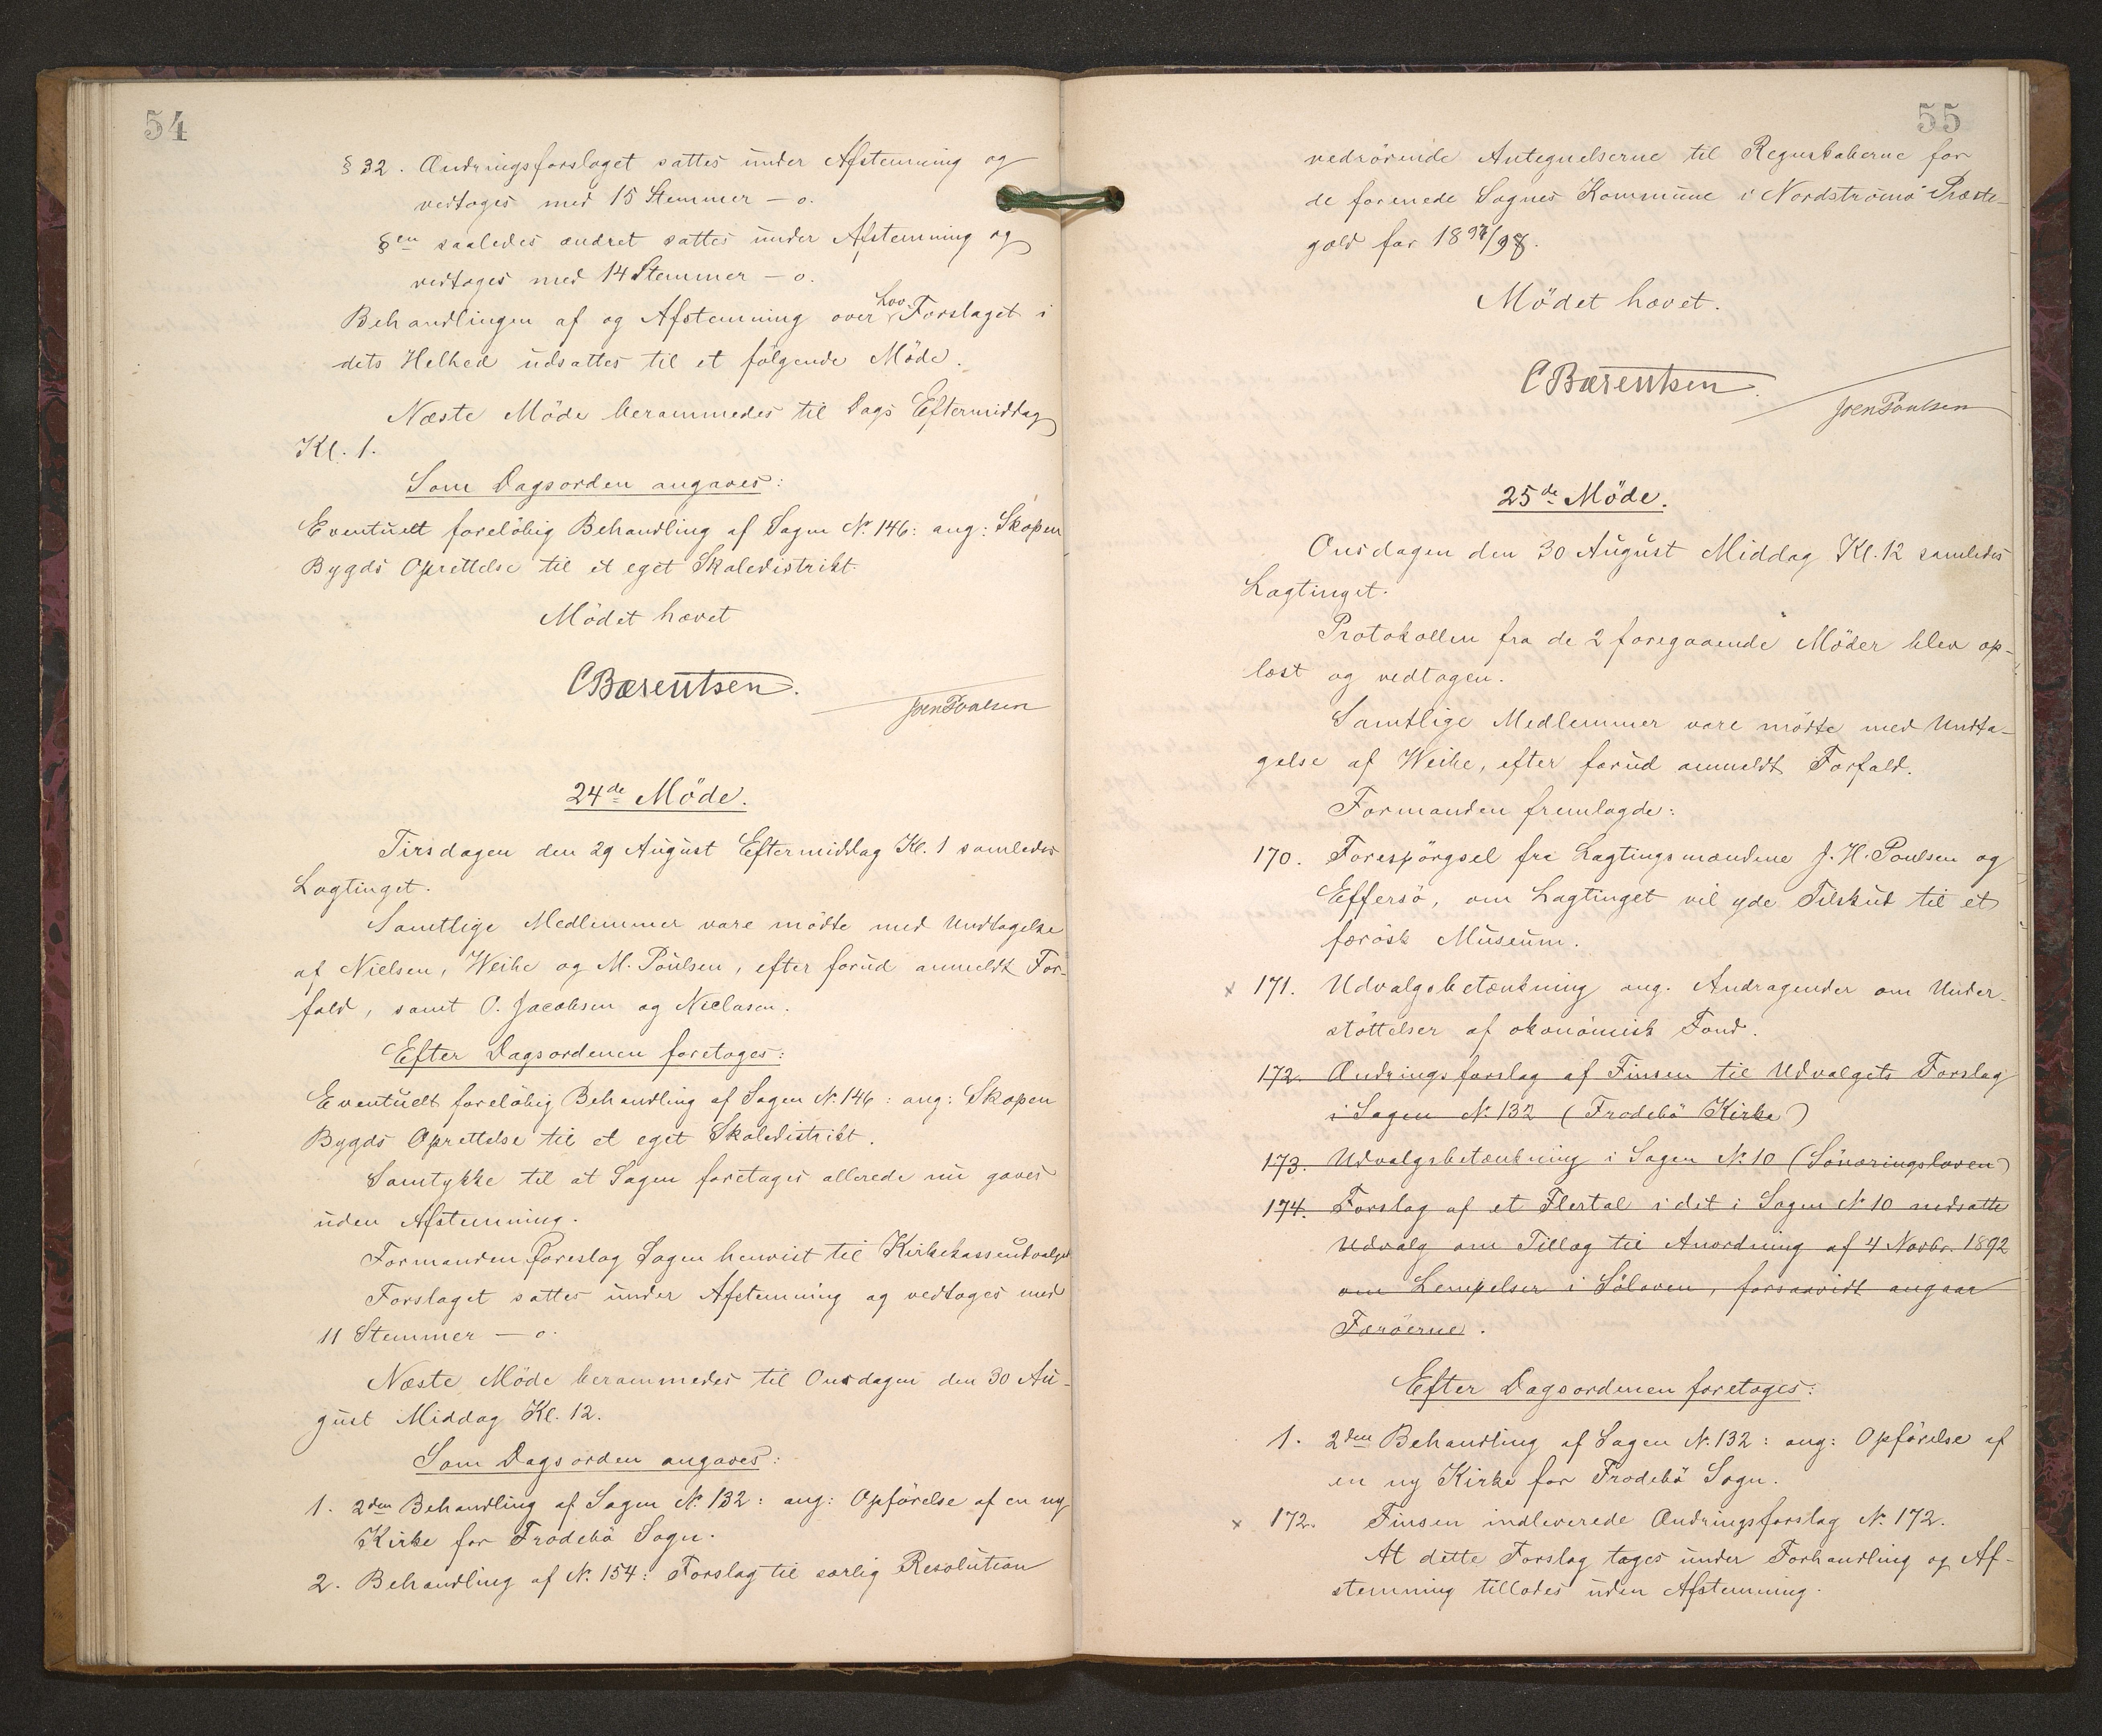 54
§ 32. Ændringsforslaget sattes under Afstemning og
vedtoges med 15 Stemmer – 0.
§en saaledes ændret sattes under Afstemning og
vedtoges med 14 Stemmer – 0.
Behandlingen af og Afstemning over Lov Forslaget i
dets Helhed udsattes til et følgende Møde.
Næste Møde berammedes til Dags Eftermiddag
Kl. 1.
Som Dagsorden angaves:
Eventuelt foreløbig Behandling af Sagen N. 146: ang: Skopen
Bygds Oprettelse til et eget Skoledistrikt.
Mödet hævet
C Bærentsen.
Joen Poulsen
24de Möde.
Tirsdagen den 29 August Eftermiddag Kl. 1 samledes
Lagtinget.
Samtlige Medlemmer vare mödte med Undtagelse
af Nielsen, Weihe og M. Poulsen, efter forud anmeldt For-
fald, samt O. Jacobsen og Niclasen.
Efter Dagsordenen foretoges:
Eventuelt foreløbig Behandling af Sagen N. 146: ang: Skopen
Bygds Oprettelse til et eget Skoledistrikt.
Samtykke til at Sagen foretages allerede nu gaves
uden Afstemning.
Formanden foreslog Sagen henvist til Kirkekasseudvalget
Forslaget sattes under Afstemning og vedtoges med
11 Stemmer – 0.
Næste Möde berammedes til Onsdagen den 30 Au-
gust Middag Kl. 12.
Som Dagsorden angaves:
1. 2den Behandling af Sagen N. 132: ang: Opförelse af en ny
Kirke for Frodebö Sogn.
2. Behandling af N. 154: Forslag til særlig Resolution
55
vedrörende Antegnelserne til Regnskaberne for
de forenede Sognes Kommune i Nordströmö Præste-
gæld for 1897/98.
Mödet hævet.
C Bærentsen.
Joen Poulsen
25de Möde.
Onsdagen den 30 August Middag Kl. 12 samledes
Lagtinget.
Protokollen fra de 2 foregaaende Möder blev op-
læst og vedtagen.
Samtlige Medlemmer vare mödte med Undta-
gelse af Weihe, efter forud anmeldt Forfald.
Formanden fremlagde:
170. Forespörgsel fra Lagtingsmændene J. H. Poulsen og
Effersö, om Lagtinget vil yde Tilskud til et
færösk Museum.
x 171. Udvalgsbetænkning ang. Andragender om Under-
støttelser af økonomisk Fond.
172. Ændringsforslag af Finsen til Udvalgets Forslag
i Sagen N. 132 (Frodebö Kirke)
173. Udvalgsbetænkning i Sagen N. 10 (Sönæringsloven)
174. Forslag af et Flertal i det i Sagen N. 10 nedsatte
Udvalg om Tillæg til Anordning af 4 Novbr. 1892
om Lempelser i Söloven, forsaavidt angaar
Færöerne.
Efter Dagsordenen foretoges:
1. 2den Behandling af Sagen N. 132: ang: Opförelse af
en ny Kirke for Frodebö Sogn.
x 172. Finsen indleverede Ændringsforslag N. 172.
At dette Forslag tages under Forhandling og Af-
stemning tillodes uden Afstemning.